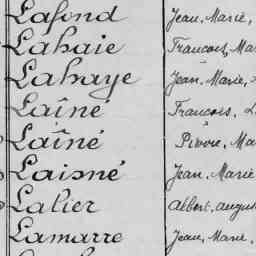 Lafond Jean, Marie,
Lahaie Francois, Ma
Lahaye Jean, Marie,
Laîné Francois, L
Laîné Pierre, Ma
Laisné Jean, Marie
Lalier Albert, augus
Lamarre Jean, Marie,